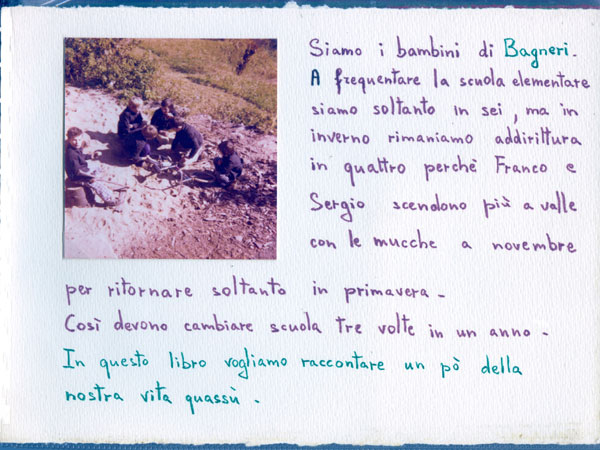 Siamo i bambini di Bagneri.
A frequentare la scuola elementare
siamo soltanto in sei, ma in
inverno rimaniamo addirittura
in quattro perchè Franco e
Sergio scendono più a valle
con le mucche a novembre
per ritornare soltanto in primavera.
Così devono cambiare scuola tre volte in un anno.
In questo libro vogliamo raccontare un pò della
nostra vita quassù.